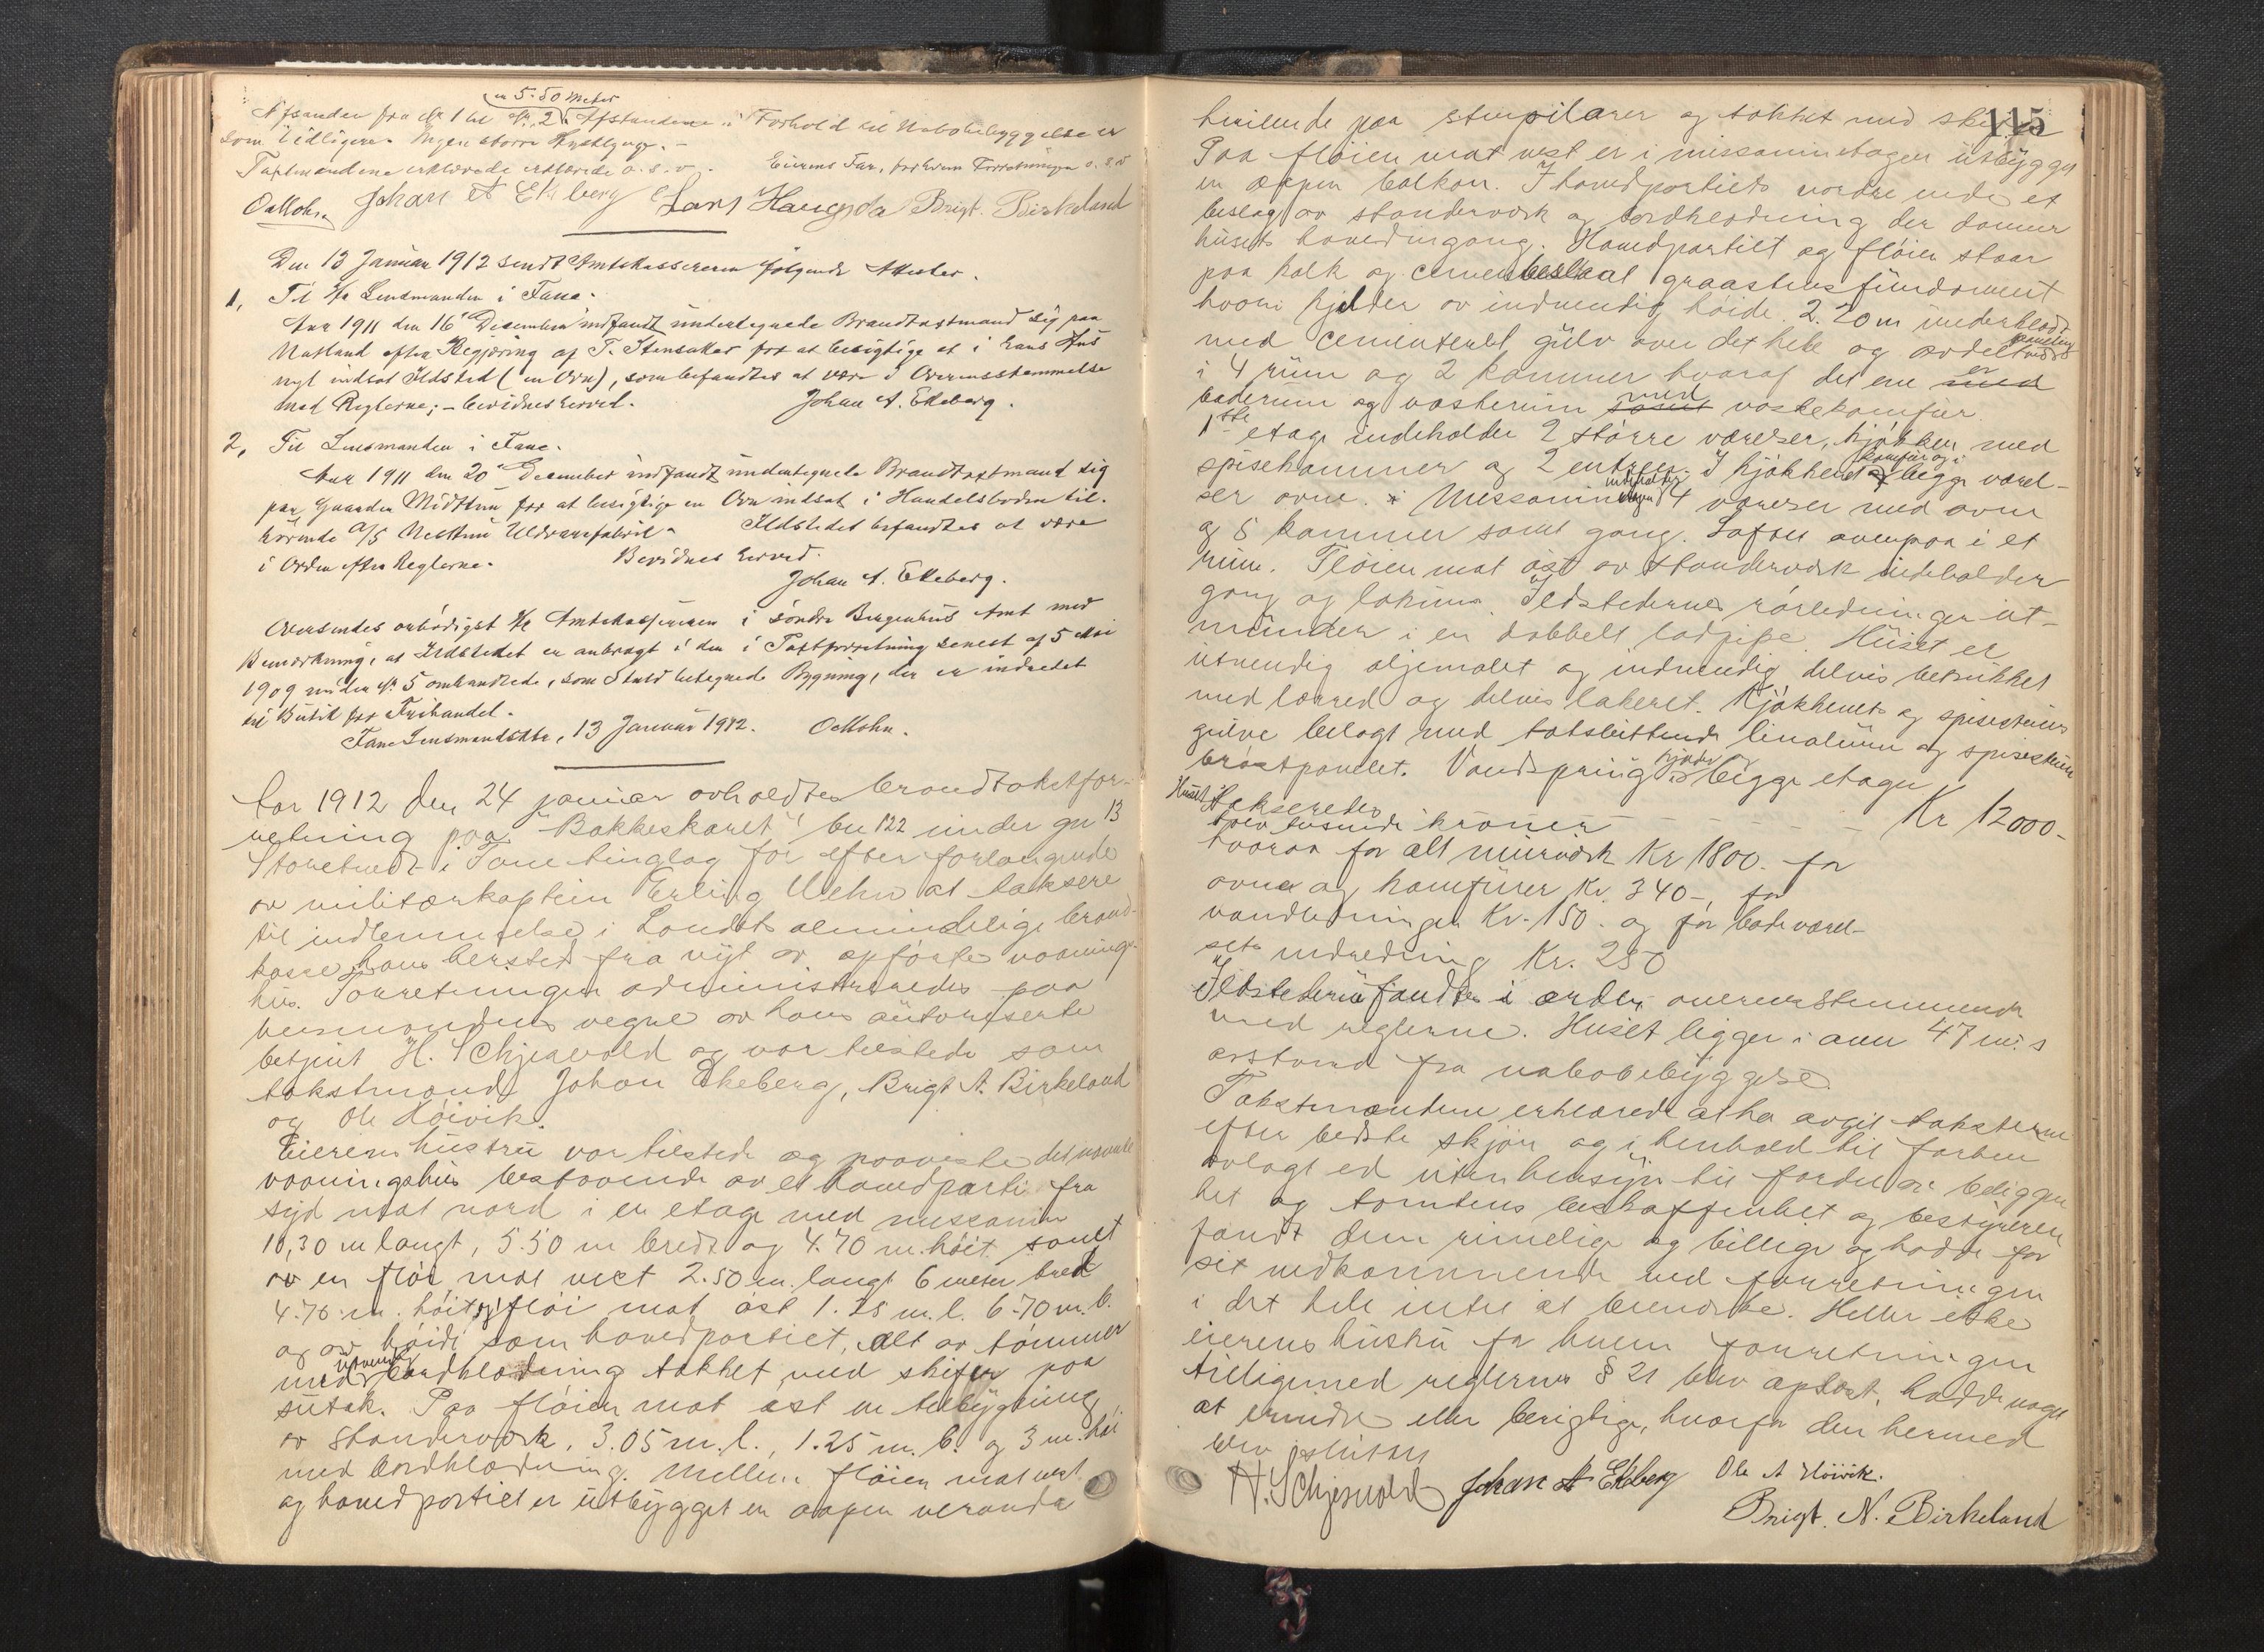 er 5.50 Meter
Afstanden fra No 1 til No 2 Afstandene i Forhold til Nabobebyggelse er
som tidligere. Ingen større
Taxtmændene erklærede o. s. v. Eierens Far, forhdum Forretningen o. s. v
O. Mohn Johan A Ekeberg Lars Haugsdal Brigt. Birkeland
Den 13 Januar 1912 sendt Amtskassereren følgende Attester.
1, Til Hr Lensmanden i Fane.
Aar 1911 den 16 December indfandt undertegnede Brandtaxtmand sig paa
Natland efter Begjæring af T. Stensaker for at besigtige et i hans Hus
nyt indsat Ildsted (en Ovn), som befandtes at være i Overensstemmelse
med Reglerne; - bevidnes herved. Johan A. Ekeberg.
2, Til Lensmanden i Fane.
Aar 1911 den 20 December indfandt undertegnede Brandtaxtmand sig
paa Gaarden Midttun for at besigtige en Ovn indsat i Handelsboden til-
hörende A/S Nesttun Uldvarefabrik. Ildstedet befandtes at være
i Orden efter Reglerne. Bevidnes herved.
Johan A. Ekeberg.
Oversendes ærbödigst Hr Amtskassereren i söndre Bergenhus Amt med
Bemærkning, at Ildstedet er anbragt i den i Taxtforretning senest af 5 Mai
1909 under No 5 omhandlede, som Stald betegnede Bygning, der er indredet
til Butik for Frihandel.
Fane Lensmandsktr, 13 Januar 1912. O. Mohn.
Aar 1912 den 24 januar avholdtes brandtakstfor-
retning paa "Bakkeskaret" bn 122 under gn 13
Storetvedt i Fane tinglag for efter forlangende
av militærkaptein Erling Uehn at taksere
til indlemmelse i Landets almindelige brand-
kasse hans herstedt fra nyt av opførte vaanings-
hus. Forretningen administreredes paa
lensmandens vegne av hans autoriserte
betjent H. Schjesvold og var tilstede som
takstmænd Johan Ekeberg, Brigt N. Birkeland
og Ole Höivik.
Eierens hustru var tilstede og paaviste det nævnte
vaaningshus bestaaende av et hovedparti fra
syd mot nord i en etage med messanin
10,30 m langt, 5.50 m bredt og 4.70 m. höit samt
av en flöi mot vest 2.50 m. langt 6 meter bred
4.70 m. höit og flöi mot öst 1.25 m. l. 6.70 m. b.
og av höide som hovedpartiet, alt av tömmer
med utvendig bordklædning tækket med skifer paa
sutak. Paa flöien mot öst en tilbygning
av standerværk, 3.05 m. l., 1.25 m. b. og 3 m. höi
med bordklædning. Mellem flöien mot vest
og hovedpartiet er utbygget en aapen veranda
115
hvilende paa stenpilarer og tækket med skifer
Paa flöien mot vest er i messaninetagen utbygget
en aapen balkon. I hovedpartiets nordre ende et
beslag av standerværk og bordklædning der danner
husets hovedingang. Hovedpartiet og flöien staar
paa kalk og cementbeslaat graastensfundament
hvori kjelder av indvendig höide 2.20 m underklædt
med cementeret gulv over det hele og avdelt ved paneling
i 4 rum og 2 kammer hvoraf det ene er
baderum og vaskerum med vaskekomfur
1ste etage indeholder 2 större værelser, kjökken med
spisekammer og 2 entreer. I kjökkenet komfur og i begge værel-
ser ovne. Messaninetagen indeholder 4 værelser med ovne
og 5 kammer samt gang. Loftet ovenpaa i et
rum. Flöien mot öst av standerværk indeholder
gang og lokum. Ildstedernes rörledninger ut-
munder i en dobbelt lodpipe. Huset er
utvendig oljemalet og indvendig delvis betrukket
med lærred og delvis lakeret. Kjökkenets og spisestuens
gulve belagt med fastsittende linoleum og spisestuen
bröstpanelet. Vandspring i kjelder og begge etager
Huset takseredes
tolv tusinde kroner - - - - - - Kr 12000-
hvorav for alt murværk Kr 1800. for
ovne og komfurer Kr. 340-, for
vandledningen Kr. 150. og for badeværel-
sets indredning Kr. 250
Ildstederne fandtes i orden overensstemmende
med reglerne. Huset ligger i een 47 m.s
avstand fra nabobebyggelse.
Takstmændene erklærede at ha avgit taksterne
efter bedste skjön og i henhold til forhen
avlagt ed uten hensyn til fordel av beliggen
het og tomtens beskaffenhet og bestyreren
fandt dem rimelige og billige og hadde for
sit vedkommende ved forretningen
i det hele intet at bemerke. Heller ikke
eierens hustru for hvem forretningen
tilligemed reglernes § 21 blev oplæst, hadde noget
at erindre eller berigtige, hvorfor den hermed
blev sluttet
H. Schjesvold Johan A Ekeberg Ole A Höivik.
Brigt. N. Birkeland